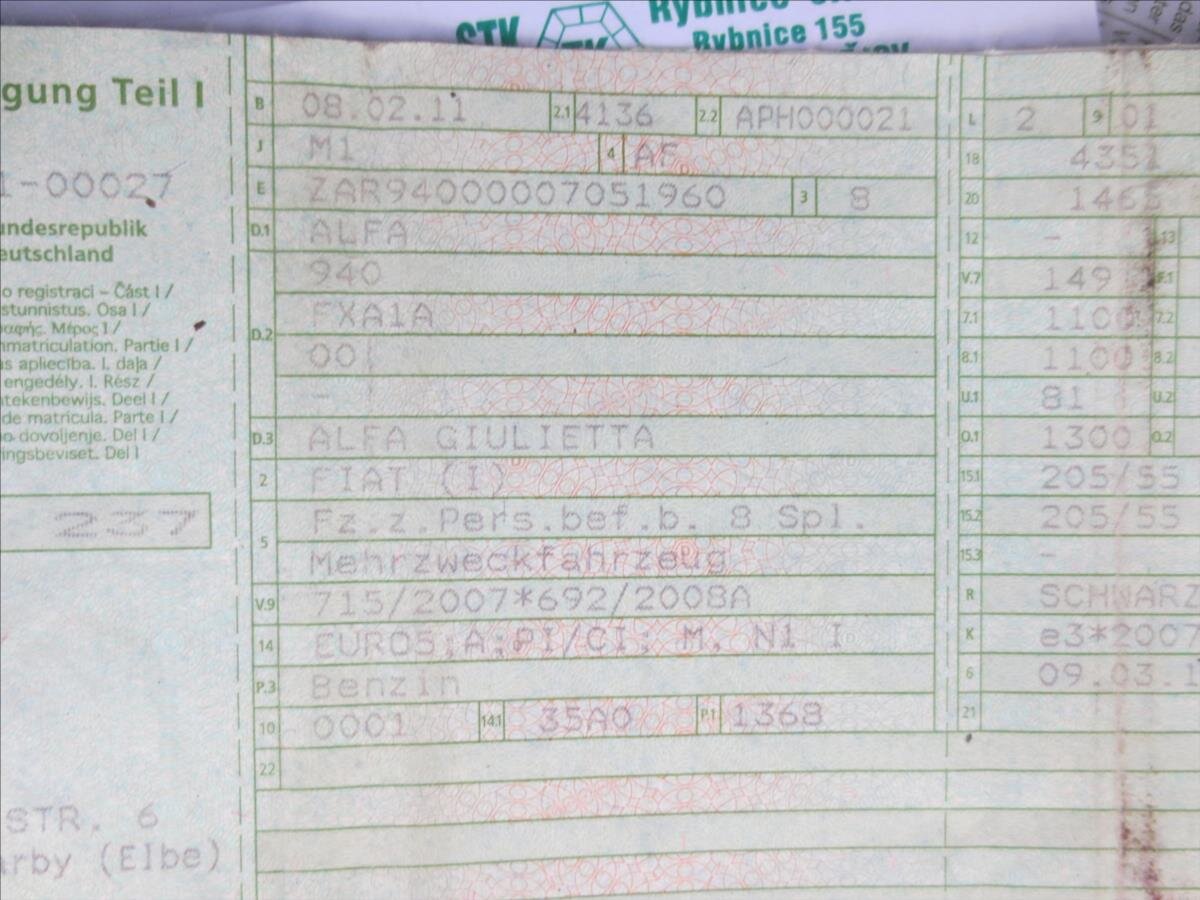 STK
Rybnice 155
gung Teil I
1-00027
undesrepublik
eutschland
o registraci – Část I /
stunnistus. Osa I /
Μέρος I /
matriculation. Partie I /
as apliecība. I. daļa /
engedély. I. Rész /
tekenbewijs. Deel I /
de matrícula. Parte I /
o dovoljenje. Del I /
ingsbeviset. Del I
237
STR. 6
arby (Elbe)
B 08.02.11 2.1 4136 2.2 APH000021
J M1 4 AF
E ZAR94000007051960 3 8
D.1 ALFA
940
FXA1A
D.2
00
-
D.3 ALFA GIULIETTA
2 FIAT (I)
Fz.z.Pers.bef.b. 8 Spl.
5
Mehrzweckfahrzeug
V.9 715/2007*692/2008A
14 EURO5;A;PI/CI; M, N1 I
P.3 Benzin
10 0001 14.1 35A0 P.1 1368
22
L 2 9 01
18 4351
20 146
12 - 13
V.7 149 F.1
7.1 1100 7.2
8.1 1100 8.2
U.1 81 U.2
O.1 1300 O.2
15.1 205/55
15.2 205/55
15.3 -
R SCHWARZ
K e3*2007
6 09.03.1
21